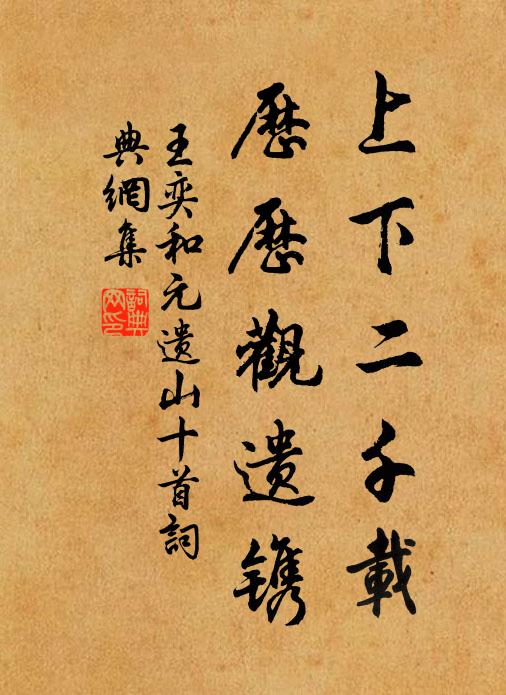 上下二千載
歷歷觀遗鐫
王奕和元遗山十首詞
典網集
詞典網印